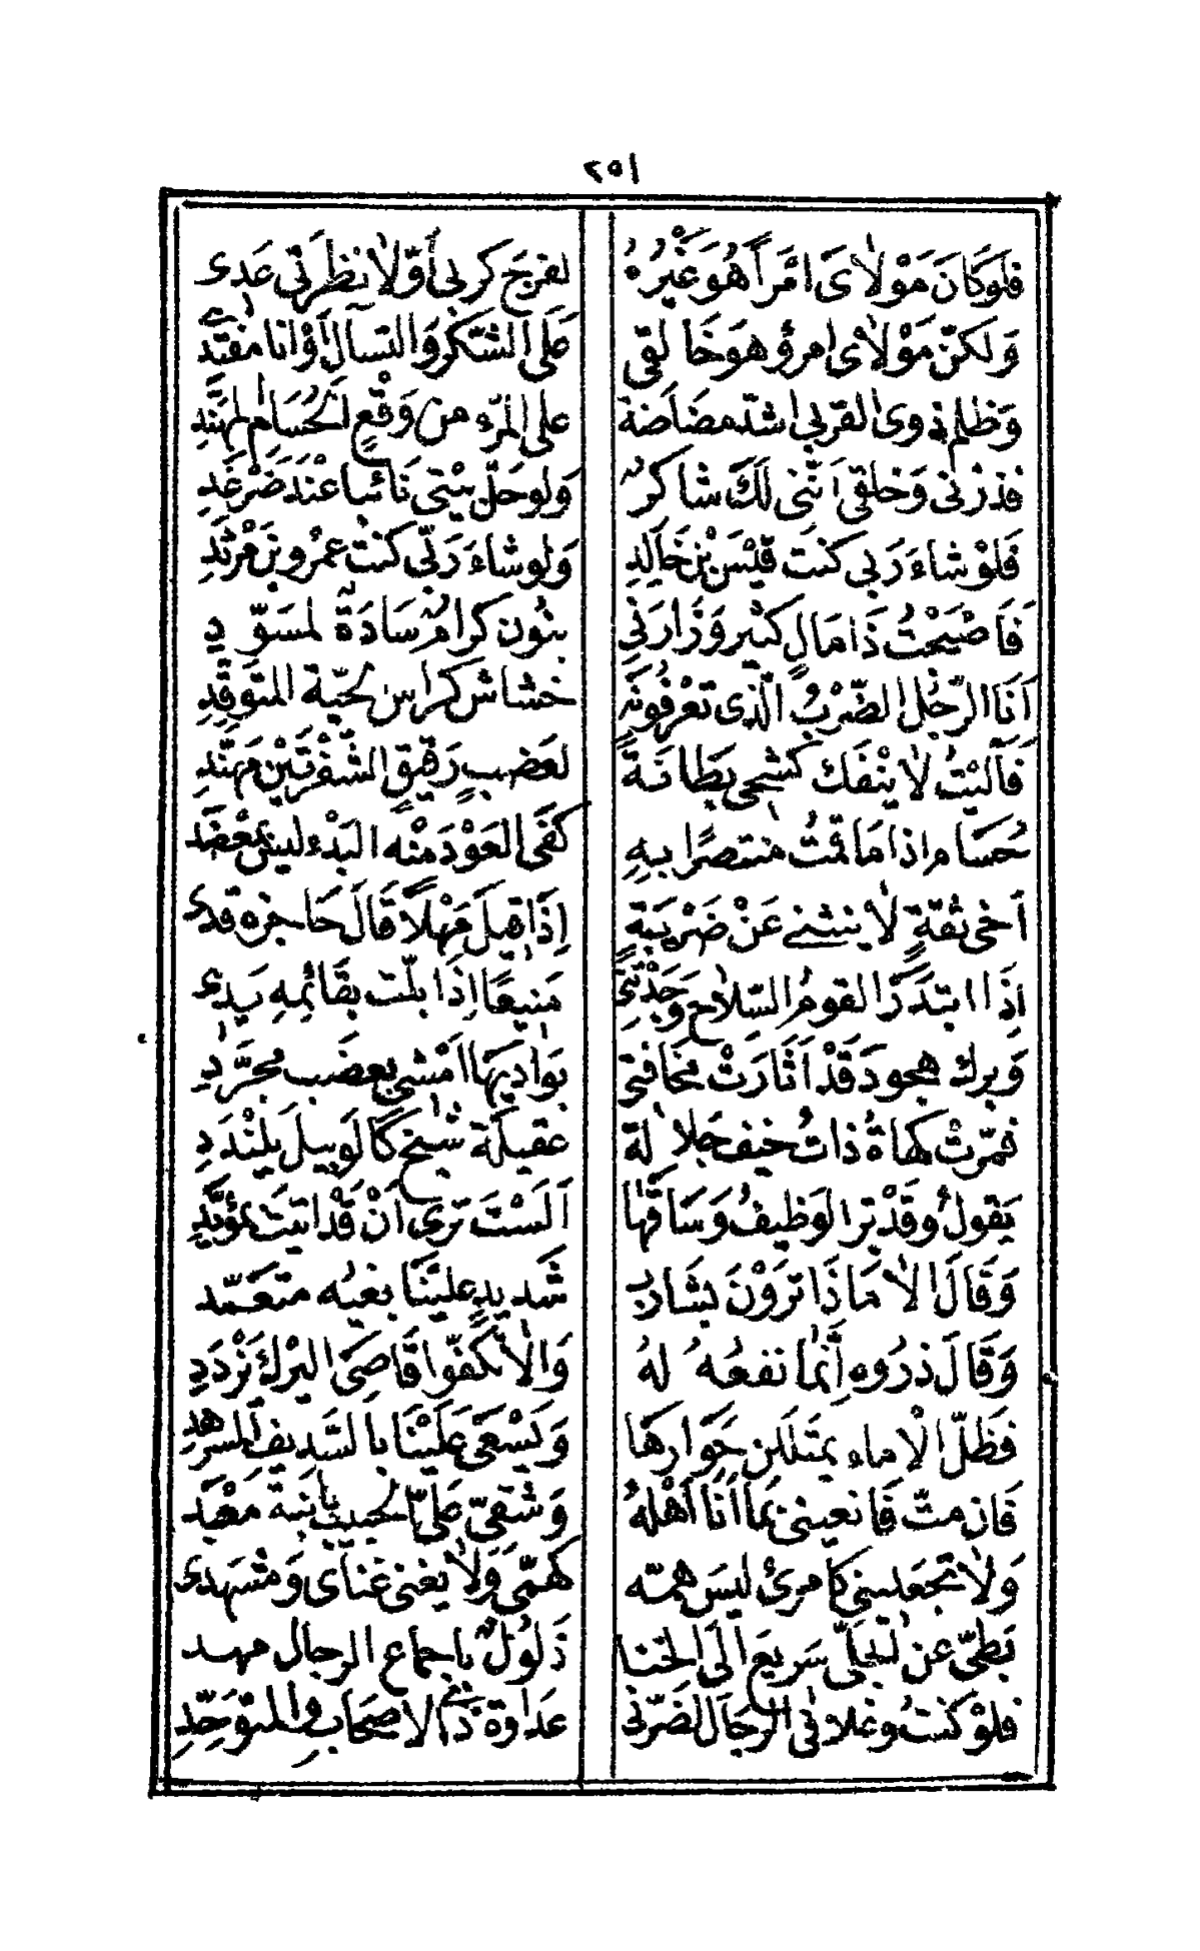 ٢٥١
فَلَوْ كَانَ مَوْلَاىَ امْرَأً هُوَ غَيْرُهُ لفرّجَ كربى أوّلا نظرنى غَدى
وَلكنّ مَوْلَاى امرؤ هوَ خَا لقى عَلَى الشّكر وَالتسآل أَوْ انا مفتَدى
وَظلم ذوى القربى اشدّ مضَاضة على المَرْء من وَقْعِ الحُسَام المهنّدِ
فذرْنى وَخلقى اَنّنى لَكَ شاكرٌ وَلو حَلّ بيْتى نَائيا عنْدَ ضَرْغَدِ
فَلَوْ شاءَ رَبى كنتَ قَيْسَ بْنَ خَالِدِ وَلو شاءَ رَبّى كنت عمْرو بنَ مَرْثَدِ
فَاَصْبَحْتُ ذَا مَالٍ كثير وَزَارَنى بنُون كرامٌ سَادَةٌ لمسَوّدِ
اَنَا الرّجُلُ الضّرْبُ الَّذى تعْرفُونَهُ خشاش كراس الحيّة المتَوقّدِ
فَآلَيْتُ لَا ينْفَك كشحى بِطَانَةً لعَضبٍ رَقيقِ الشّفْرتَيْن مهنّدِ
حُسَام اذا مَا قمْتُ منتصرًا بهِ كفَى العَوْدَ منْه البَدْء ليسَ بمعْضَدِ
اَخى ثقةٍ لَا ينثنى عَنْ ضَرْيبَةٍ اِذَا قيلَ مَهْلًا قَالَ حَاجزه قدى
اِذَا ابتدَرَ القومُ السّلاح وَجدْتَنى مَنيعًا اِذَا بلّت بقَائمِهِ يَدى
وَبرك هجود قَدْ اَثَارَتْ مخافتى بَوَاديَهَا اَمْشى بعضَب مجَرَّدِ
فمرّتْ كهاةٌ ذاتُ خيف جلَالة عَقيلَة شيخ كَالوَبيلَ يلنْدَدِ
يَقولُ وقَدْ ترا لوَظيفُ وَسَاقُهَا اَلَسْتَ تَرى اَنْ قَدْ اتيتَ بمؤيَدِ
وَقَالَ الَا مَاذَا تَرَوْنَ بشَارب شَديدٍ عليْنَا بغيُه متعَمّد
وَقَالَ ذرُوه اِنّمَا نفعُهُ لهُ وَالّا تكفّوا قَاصَىَ البَرْكَ يَزْدَدِ
فَظَلّ الْاماء يمتَللن حَوَارهَا وَيَسْعَى عَلَيْنَا بالسّديف المسرهدِ
فَان متّ فَانعينى بمَا اَنَا اَهْلهُ وَشقّى عَلَىّ الجيبَ يَا بْنة معْبَد
وَلَا تجعَلينى كامرئ ليسَ همّه كهَمّى وَلَا يغنى غنَاى وَمشهَدى
بَطئ عن الجلّى سَريع الَى الخنَا ذَلُولٌ باجماع الرجال مهد
فلوْ كنتُ وغلا فى الرجَال لضَرّنى عَداوة ذى الاصحَاب وَالمتَوَحّدِ